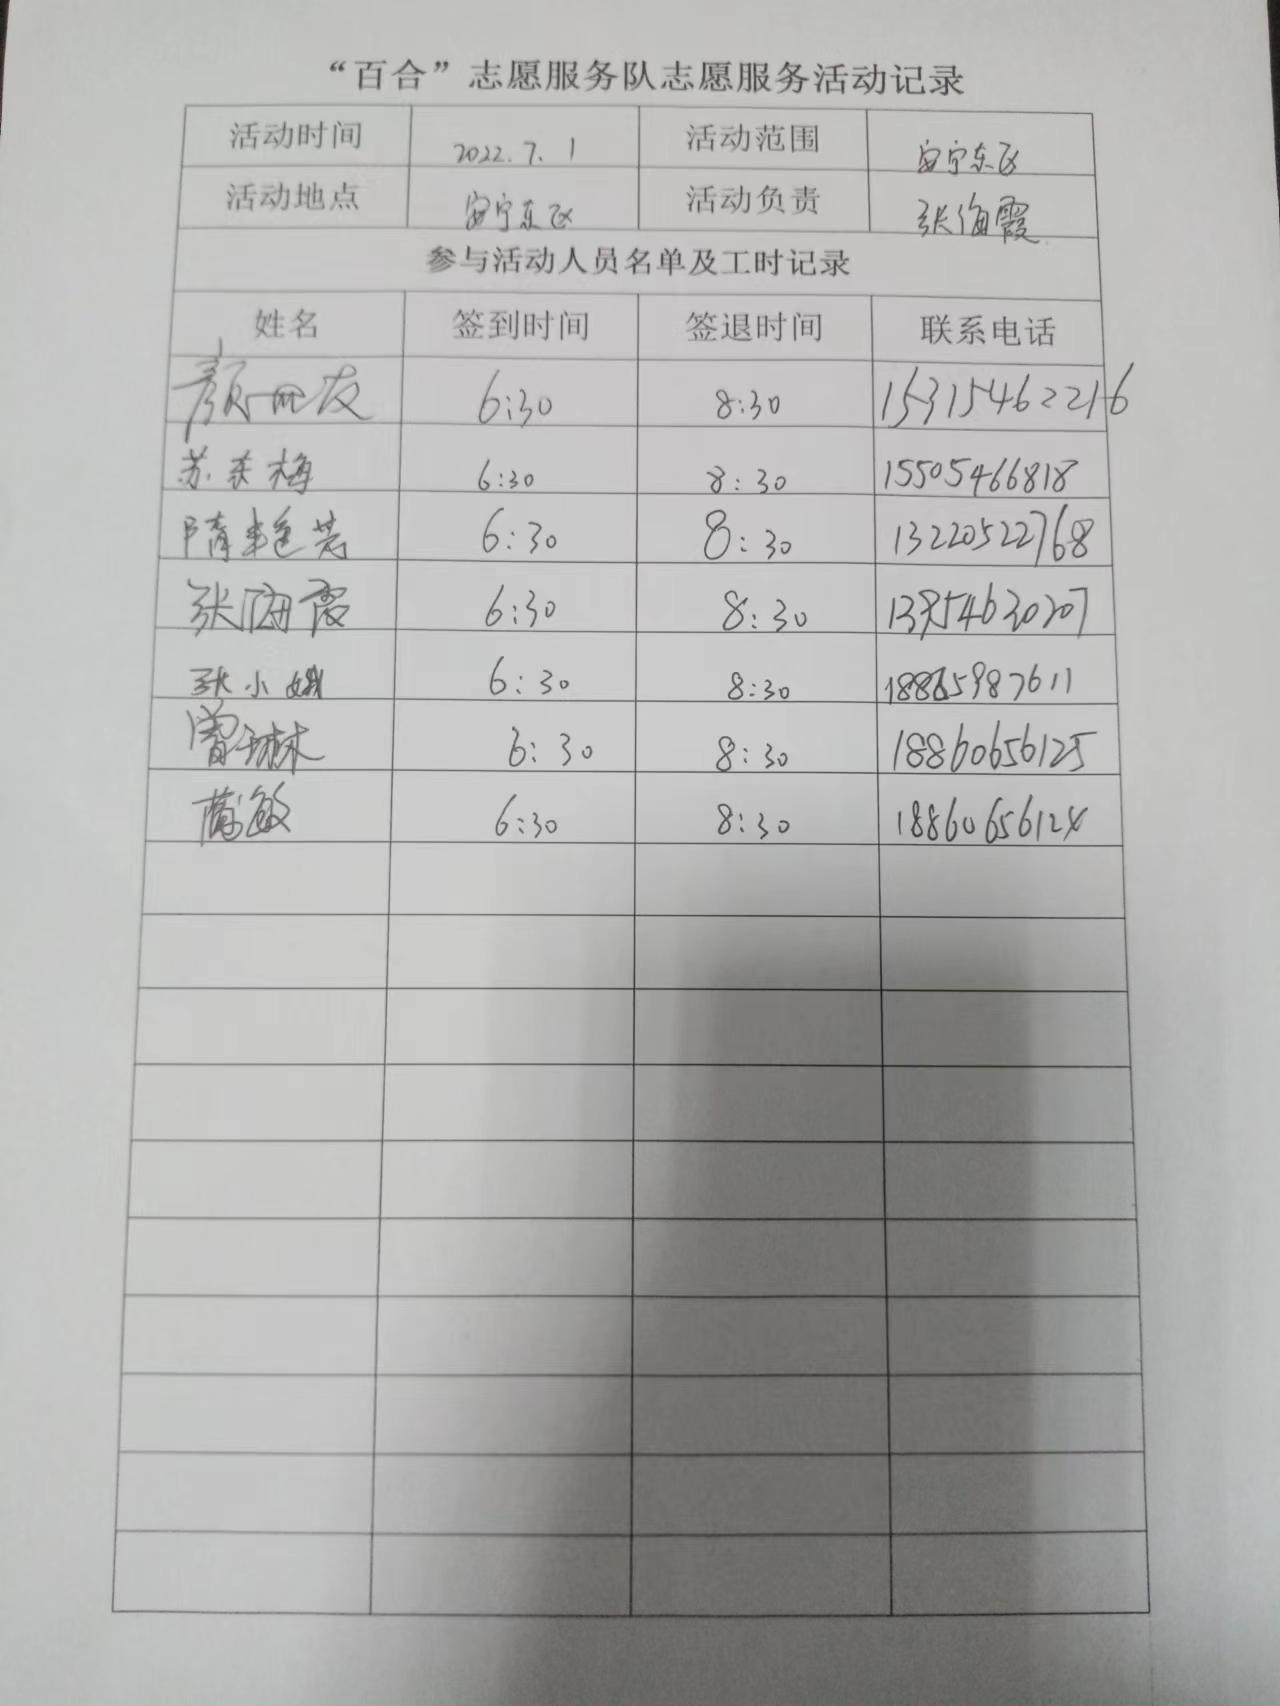 “百合”志愿服务队志愿服务活动记录
活动时间 2022.7.1 活动范围 安宁东区
活动地点 安宁东区 活动负责 张海霞
参与活动人员名单及工时记录
姓名 签到时间 签退时间 联系电话
6:30 8:30 15315462216
苏冬梅 6:30 8:30 15505466818
隋艳芸 6:30 8:30 13220522768
张海霞 6:30 8:30 13954630207
张小娥 6:30 8:30 18865987611
曾琳 6:30 8:30 18860656125
6:30 8:30 18860656124